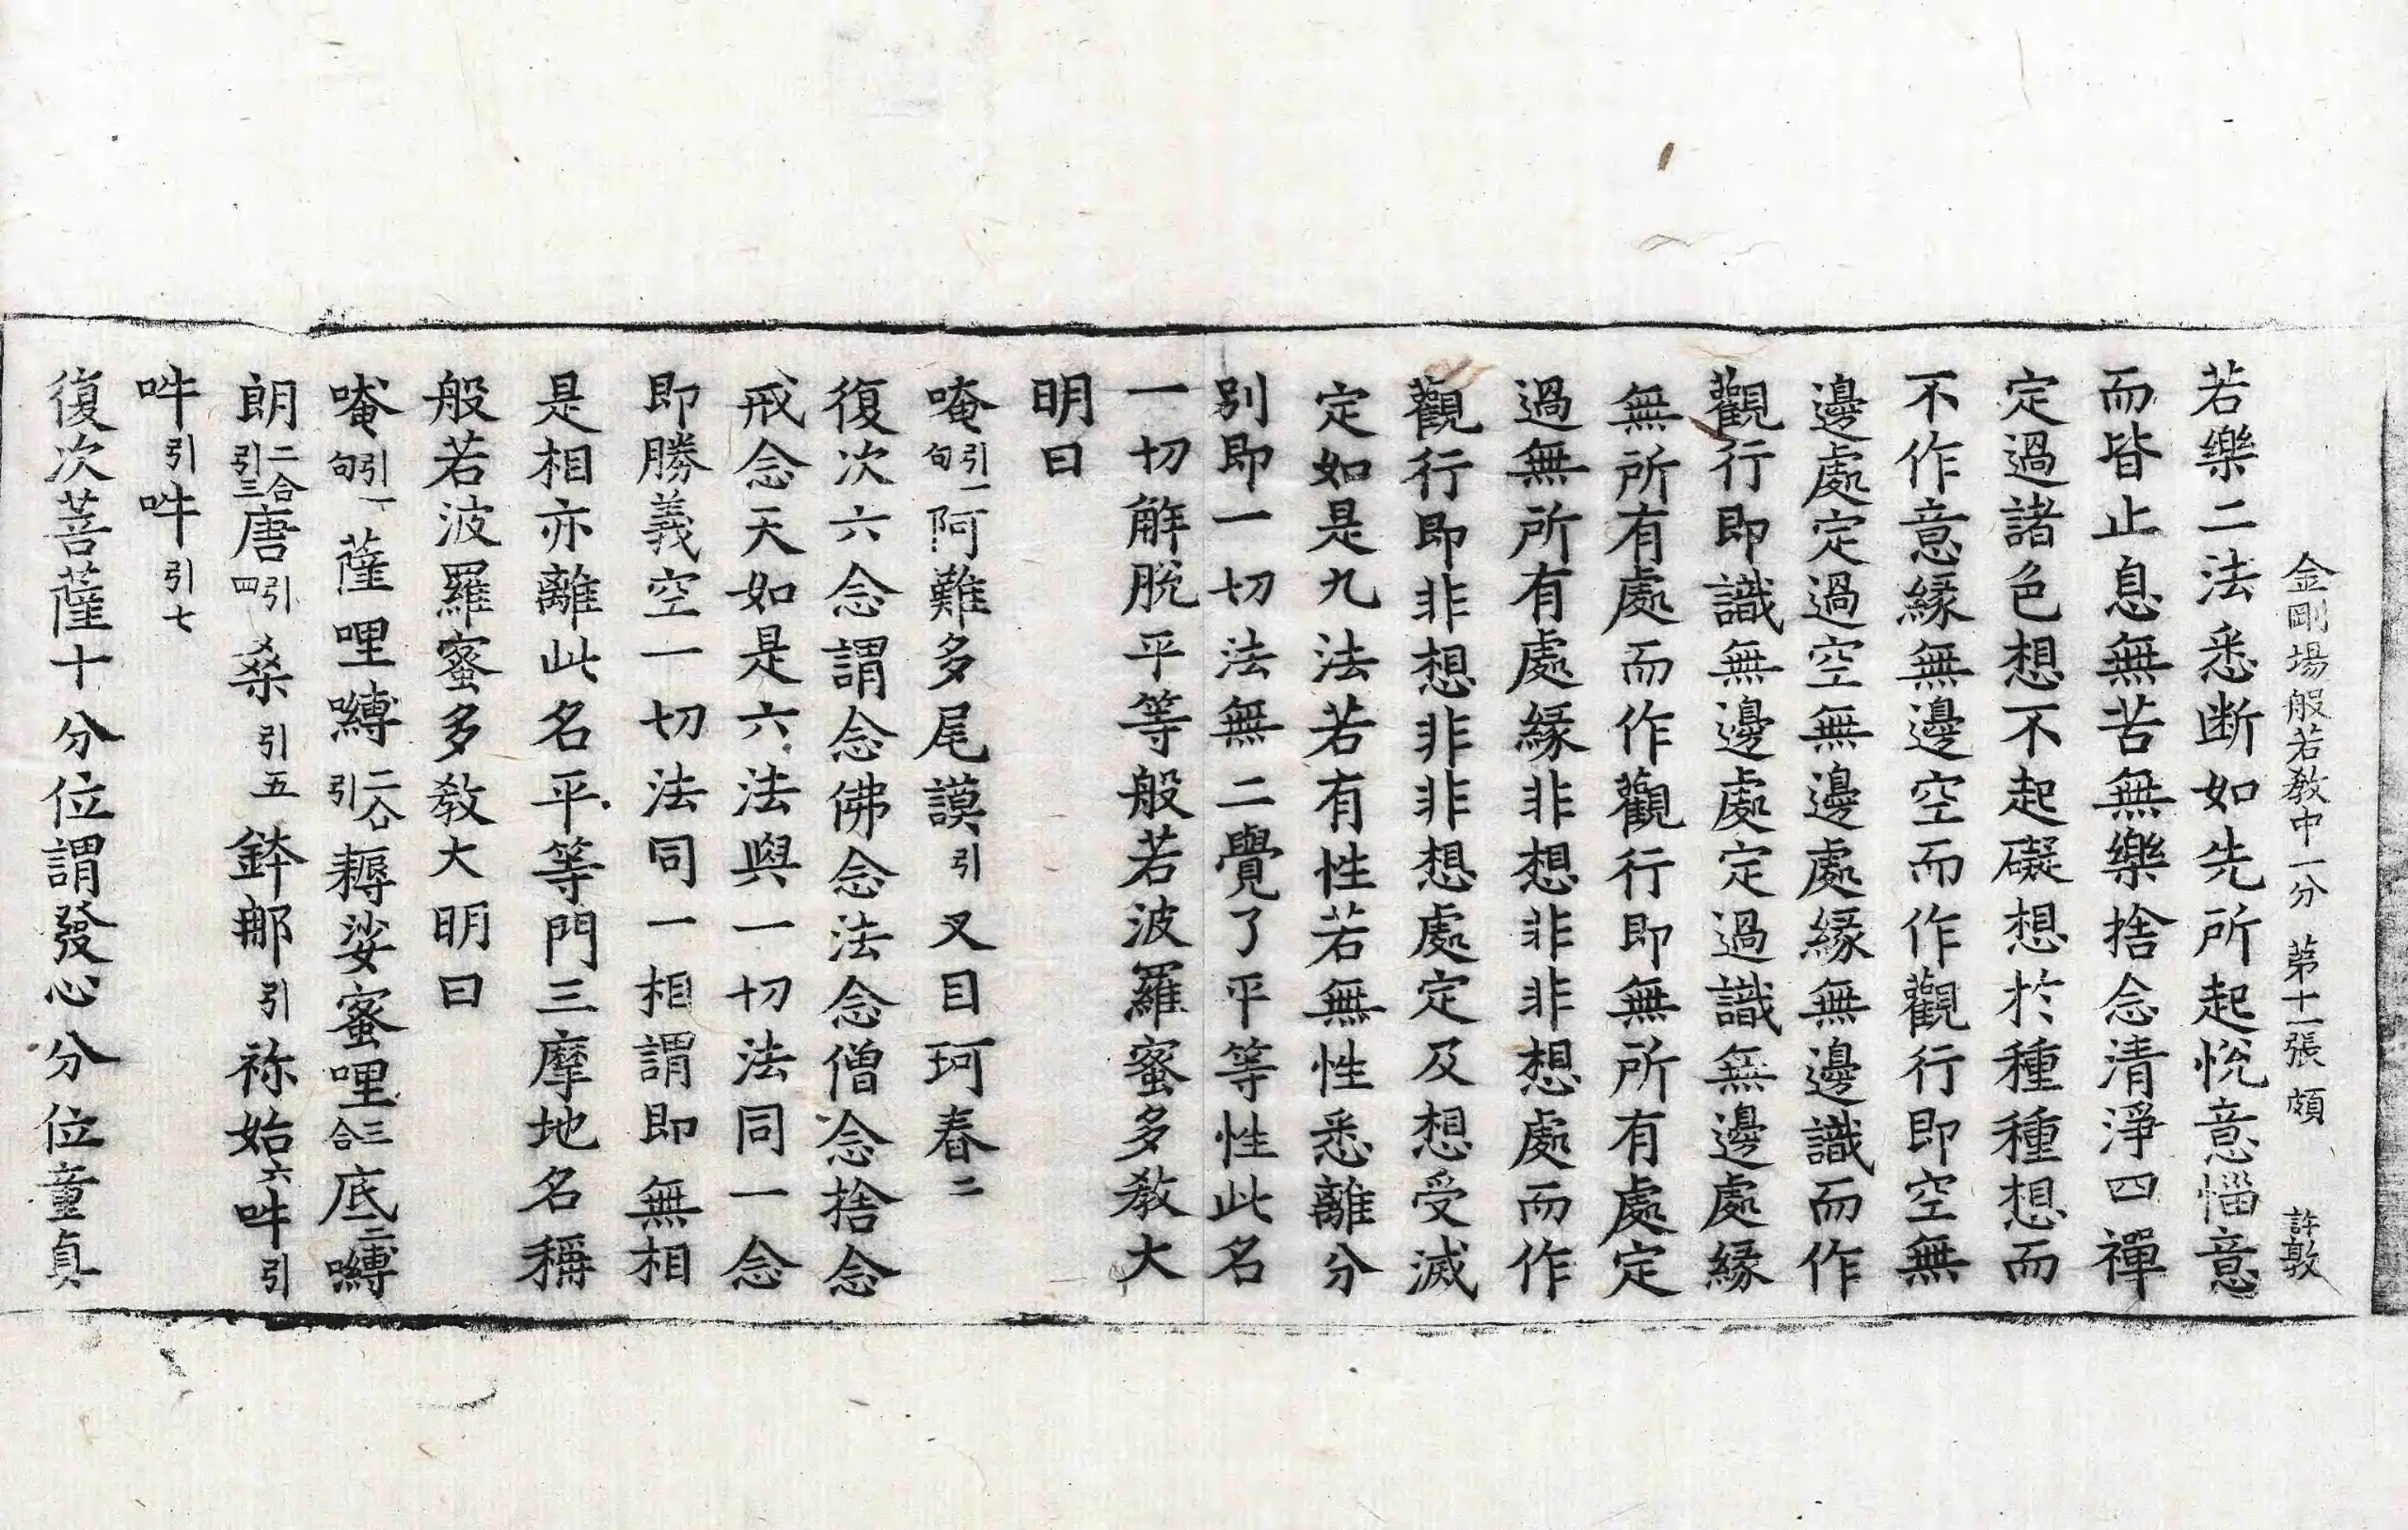 金剛場般若教中一分 第十一張 頗 許敦
若樂二法悉断如先所起悅意惱意
而皆止息無苦無樂捨念清淨四禪
定過諸色想不起礙想於種種想而
不作意緣無邊空而作觀行即空無
邊處定過空無邊處緣無邊識而作
觀行即識無邊處定過識無邊處緣
無所有處而作觀行即無所有處定
過無所有處緣非想非非想處而作
觀行即非想非非想處定及想受滅
定如是九法若有性若無性悉離分
別即一切法無二覺了平等性此名
一切解脫平等般若波羅蜜多教大
明曰
唵引一句阿難多尾謨引叉目珂春二
復次六念謂念佛念法念僧念捨念
戒念天如是六法與一切法同一念
即勝義空一切法同一相謂即無相
是相亦離此名平等門三摩地名稱
般若波羅蜜多教大明曰
唵引一句薩哩嚩二合引耨娑蜜哩三合底二嚩
朗二合引三唐引四桑引五鉢那引祢始六吽引
吽引吽引七
復次菩薩十分位謂發心分位童真